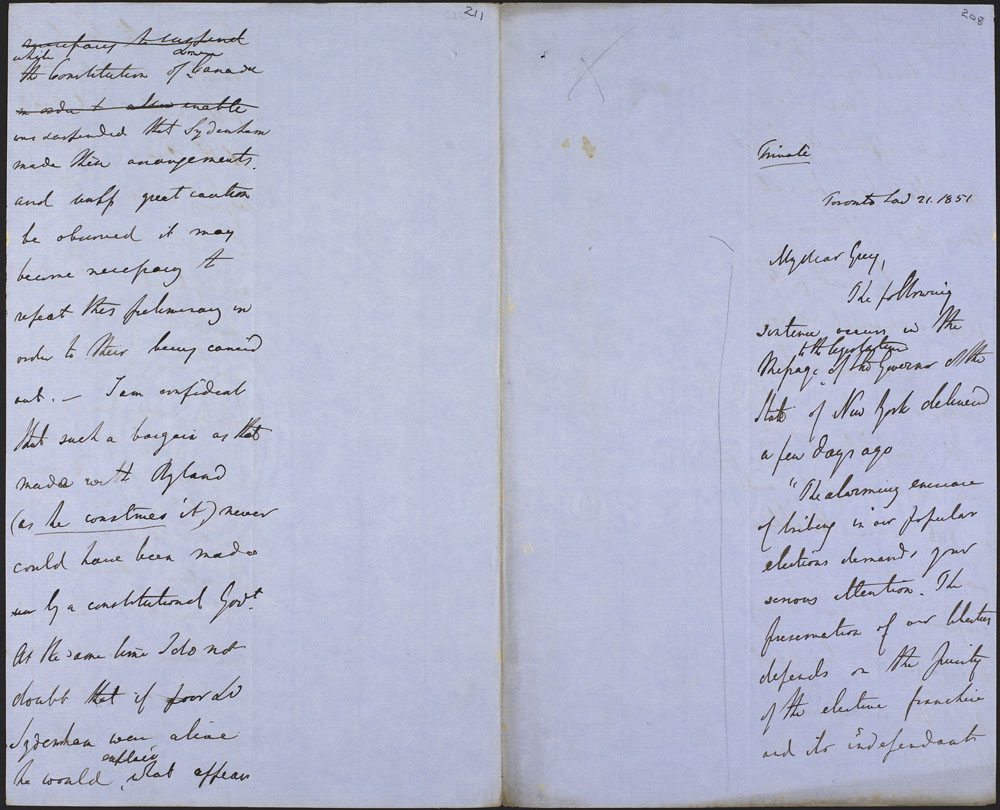 211
necessary to suspend
while
the Constitution of Lower Canada
in order to allow enable
was suspended that Sydenham
made these arrangements.
and unless great caution
be observed it may
become necessary to
repeat this preliminary in
order to their being carried
out. — I am confident
that such a bargain as that
made with Ryland
(as he construes it) never
could have been made
by a constitutional Govt.
At the same time I do not
doubt that if poor Ld
Sydenham were alive
he would explain what appears
208
Private
Toronto Jan 21. 1851
My dear Grey,
The following
sentence occurs in the
Message to the legislature of the Governor of the
State of New York delivered
a few days ago
"The alarming increase
of bribery in our popular
elections demands your
serious attention. The
preservation of our liberties
depends on the purity
of the elective franchise
and its independent